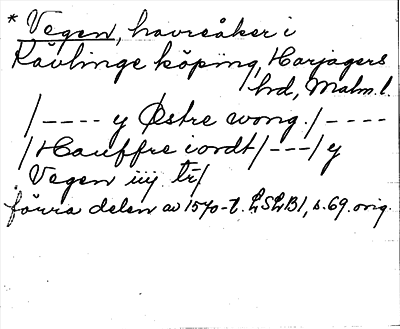 * Vegen, havreåker i
Kävlinge köping, Harjagers
hd, Malm. l.
/---- y Østre wong. /----
/Hauffre iordt/---/ y
Vegen iiij tr/
förra delen av 1570-t. LSLB1, s. 69. orig.